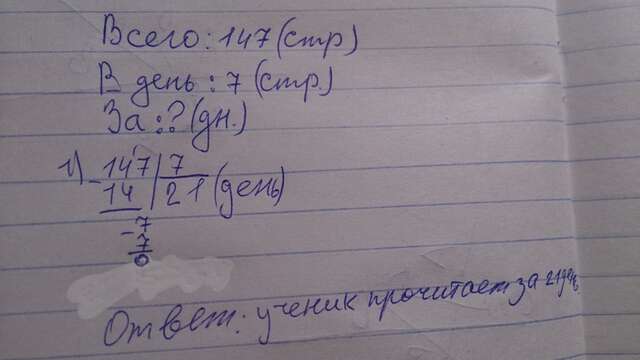 Всего: 147 (стр)
В день: 7 (стр.)
За: ? (дн.)
1) 147 | 7
- 14 | 21 (день)
- 7
7
0
Ответ: ученик прочитает за 21 день